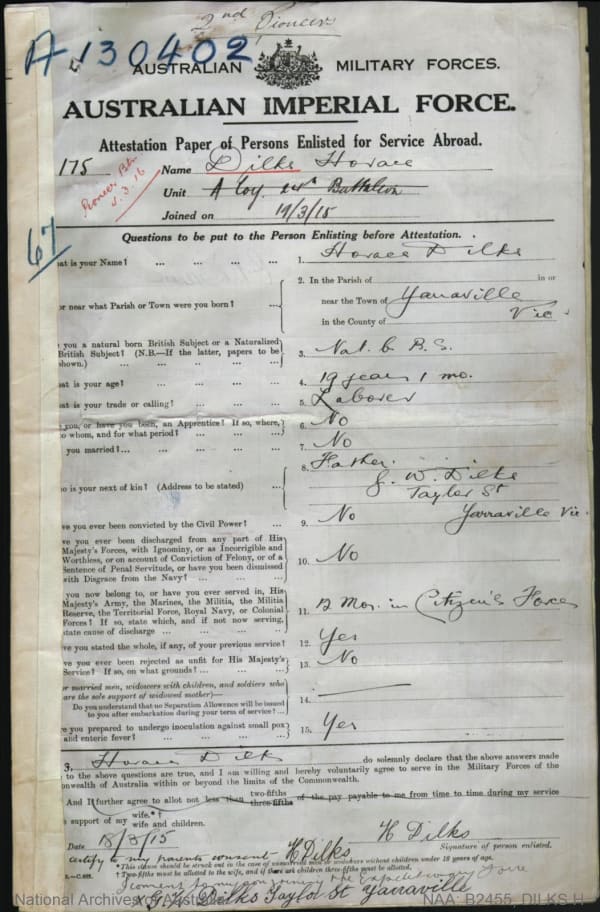 2nd Pioneers
A 130402
AUSTRALIAN MILITARY FORCES.
AUSTRALIAN IMPERIAL FORCE.
Attestation Paper of Persons Enlisted for Service Abroad.
175 Name Dilks Horace
Pioneer Bn
.3.16
Unit A Coy 24th Battalion
Joined on 19/3/15
67
Questions to be put to the Person Enlisting before Attestation.
at is your Name? ... ... ... ... 1. Horace Dilks
2. In the Parish of in or
or near what Parish or Town were you born? ... near the Town of Yarraville
in the County of Vic
you a natural born British Subject or a Naturalized
British Subject? (N.B.—If the latter, papers to be
shown.) 3. Nat. b B.S.
at is your age? ... ... ... ... 4. 19 years 1 mo.
at is your trade or calling? ... ... ... 5. Laborer
you, or have you been, an Apprentice? If so, where,
o whom, and for what period? ... ... ... 6. No
you married?... ... ... ... ... 7. No
8. Father.
J. W. Dilks
o is your next of kin? (Address to be stated) ... Taylor St
Yarraville Vic.
ve you ever been convicted by the Civil Power? ... 9. No
ve you ever been discharged from any part of His
Majesty's Forces, with Ignominy, or as Incorrigible and
Worthless, or on account of Conviction of Felony, or of a
Sentence of Penal Servitude, or have you been dismissed
with Disgrace from the Navy? ... ... ... 10. No
you now belong to, or have you ever served in, His
Majesty's Army, the Marines, the Militia, the Militia
Reserve, the Territorial Force, Royal Navy, or Colonial
Forces? If so, state which, and if not now serving,
state cause of discharge ... ... ... 11. 12 Mos. in Citizen's Forces
ve you stated the whole, if any, of your previous service? 12. Yes
ve you ever been rejected as unfit for His Majesty's
Service? If so, on what grounds? ... ... ... 13. No
or married men, widowers with children, and soldiers who
are the sole support of widowed mother)—
Do you understand that no Separation Allowance will be issued
to you after embarkation during your term of service? ... 14.
e you prepared to undergo inoculation against small pox
and enteric fever? ... ... ... ... 15. Yes
I, Horace Dilks do solemnly declare that the above answers made
to the above questions are true, and I am willing and hereby voluntarily agree to serve in the Military Forces of the
onwealth of Australia within or beyond the limits of the Commonwealth.
And I further agree to allot not less than two-fifths three-fifths of the pay payable to me from time to time during my service
support of my wife.*† wife and children.
H Dilks
Date 18/3/15 Signature of person enlisted.
certify to my parents consent H Dilks
*This clause should be struck out in the case of unmarried men or widowers without children under 18 years of age.
†Two-fifths must be allotted to the wife, and if there are children three-fifths must be allotted.
I consent to my son joining the Expeditionary Force
Dilks Taylor St Yarraville
National Archives of Australia NAA: B2455, DILKS H